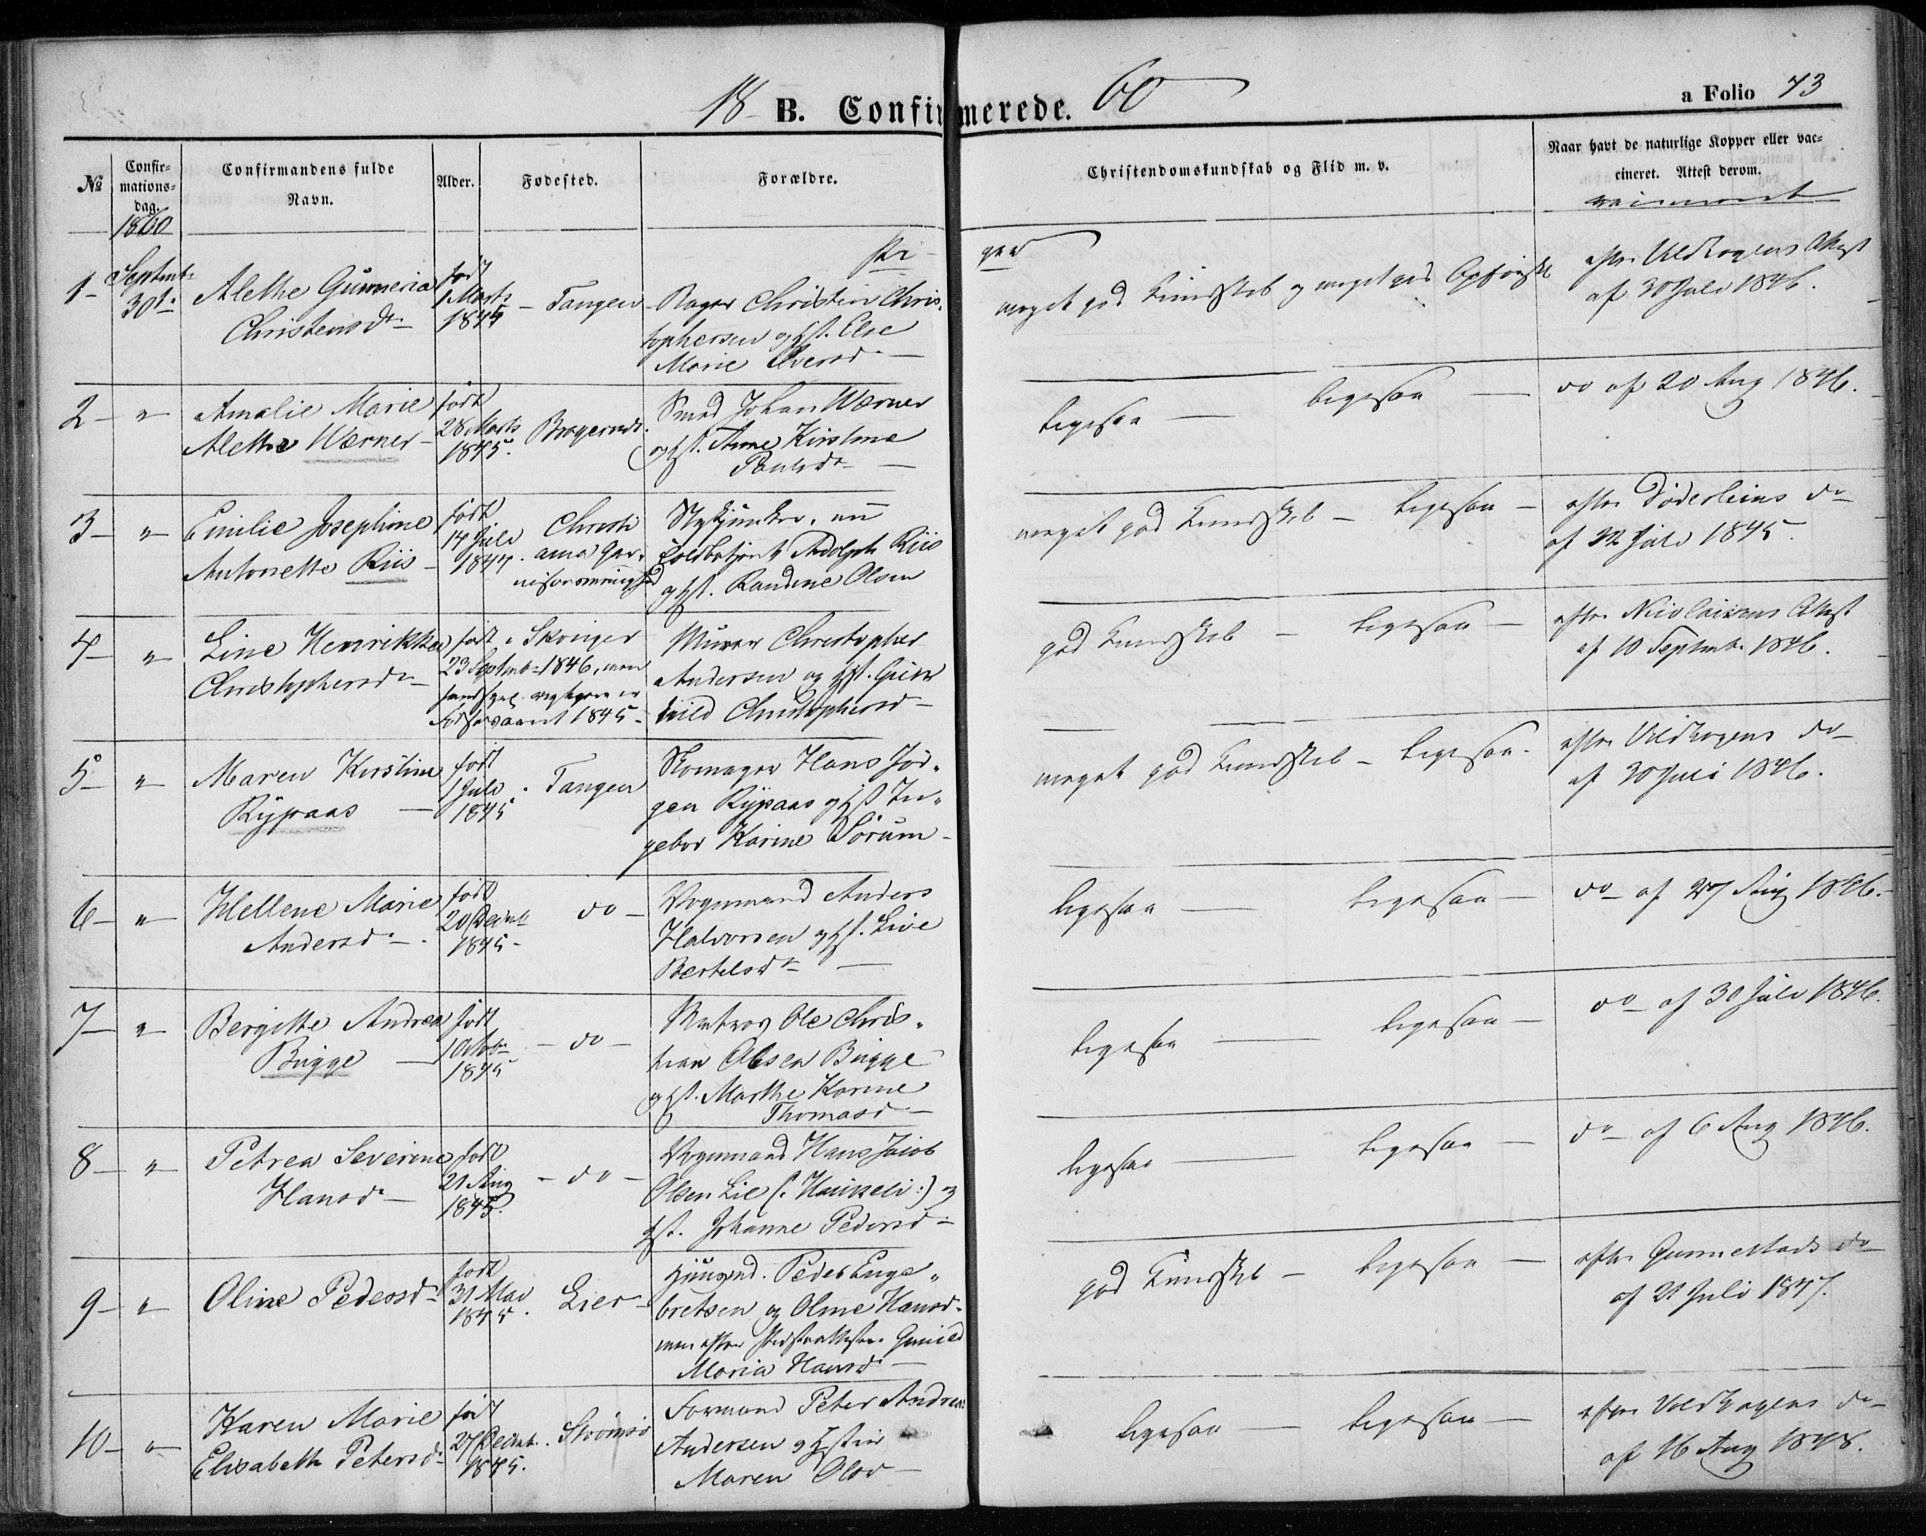 18 B. Confirmerede. 60
a Folio 73
№
Confirmations-
dag.
Confirmandens fulde
Navn.
Alder.
Fødested.
Forældre.
Christendomskundskab og Flid m. v.
Naar havt de naturlige Kopper eller vac-
cineret. Attest derom.
1860
Piger
1 - Septemb. 30te
Alethe Gunneria
Christensdr
født
1 Marts
1844
Tangen
Christen Chris-
tophersen og Hst. Else
Marie Iversd
meget god Kundskab og meget god Opførsel
efter Uldhogens Attest
af 30 Juli 1846.
2 - "
Amalie Marie
Alethe Wærner
født
28 Marts
1845.
Bragernæs.
Smed Johan Wærner
og Hst. Anne Kirstine
Paulsdr
ligesaa - ligesaa
do af 20 Aug 1846.
3 - "
Emilie Josephine
Antonette Riis
født
14 Juli
1844.
Christi-
ania Gar-
nisonsmenighed
Adolph Riis
og Hst. Randine Olsen
meget god Kundskab - ligesaa
efter Døderleins do
af 22 Juli 1845.
4 - "
Line Henrikke
Christophersdr
født
23 Septmb. 1846, men
Skoger
1845
Murer Christopher
Andersen og Hst. Gun-
hild Christophersd
god Kundskab - ligesaa
efter Nicolaisens Attest
af 10 Septemb. 1846.
5 - "
Maren Kirstine
Rypaas
født
1 Juli
1845
Tangen
Skomager Hans Jør-
gen Rypaas og Hst In-
gebor Karine Sørum
meget god Kundskab - ligesaa
efter Uldhogens do
af 30 Juli 1846.
6 - "
Hellene Marie
Andersdr
født
20 Decmb
1845
do
Vognmand Anders
Halvorsen og Hst. Live
Bertelsdr
ligesaa - ligesaa
do af 27 Aug 1846.
7 - "
Bergitte Andrea
Bugge
født
1 Octob
1845
do
Matros Ole Chris-
tian Olsen Bugge
og Hst. Marthe Karine
Thomasd
ligesaa - ligesaa
do af 30 Juli 1846.
8 - "
Petrea Severine
Hansdr
født
21 Aug
1845.
do
Vognmand Hans Jacob
Olsen Lie og
Hst. Johanne Pedersd
ligesaa - ligesaa
do af 6 Aug 1846.
9 - "
Oline Pedersdr
født
31 Mai
1845.
Lier
Peder Enge-
bretsen og Oline Hansd
men efter
Maria Hansd
god Kundskab - ligesaa
efter Gunnestads do
af 21 Juli 1847.
10 - "
Karen Marie
Elisabeth Petersdr
født
27 Decmb.
1845.
Strømsø
Formand Peter Andreas
Andersen og Hustru
Maren Olsd
ligesaa - ligesaa
efter Uldhogens do
af 16 Aug 1848.